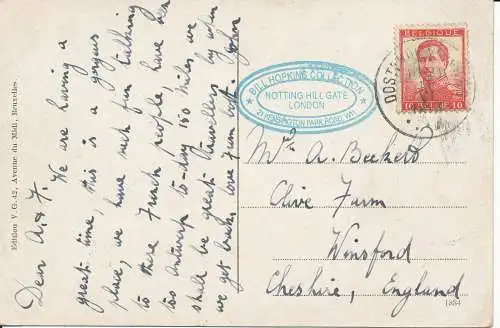 Edition V.G.-42, Avenue du Midi, Bruxelles.
Dear A. & F. We are having a
great time, this is a gorgeous
place, we have such fun talking
to these French people have been
too Antwerp to-day 150 miles we
shall be great travellers by when
we get back, love from both. John
BILL HOPKINS COLLECTION
NOTTING HILL GATE
LONDON
KENSINGTON PARK ROAD, W11
BELGIQUE
10 10
OOST
Mr A. Beckers
Olive Farm
Winsford
Cheshire, England